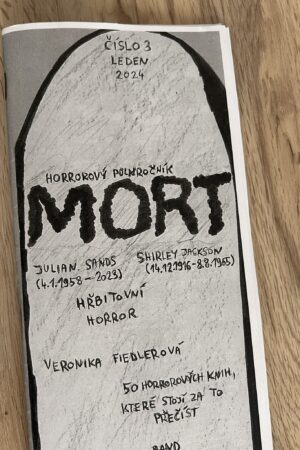 ČÍSLO 3
LEDEN
2024
HORROROVÝ POLOROČNÍK
MORT
JULIAN SANDS
(4.1.1958–2023)
SHIRLEY JACKSON
(14.12.1916-8.8.1965)
HŘBITOVNÍ
HORROR
VERONIKA FIEDLEROVÁ
50 HORROROVÝCH KNIH,
KTERÉ STOJÍ ZA TO
PŘEČÍST
BAND